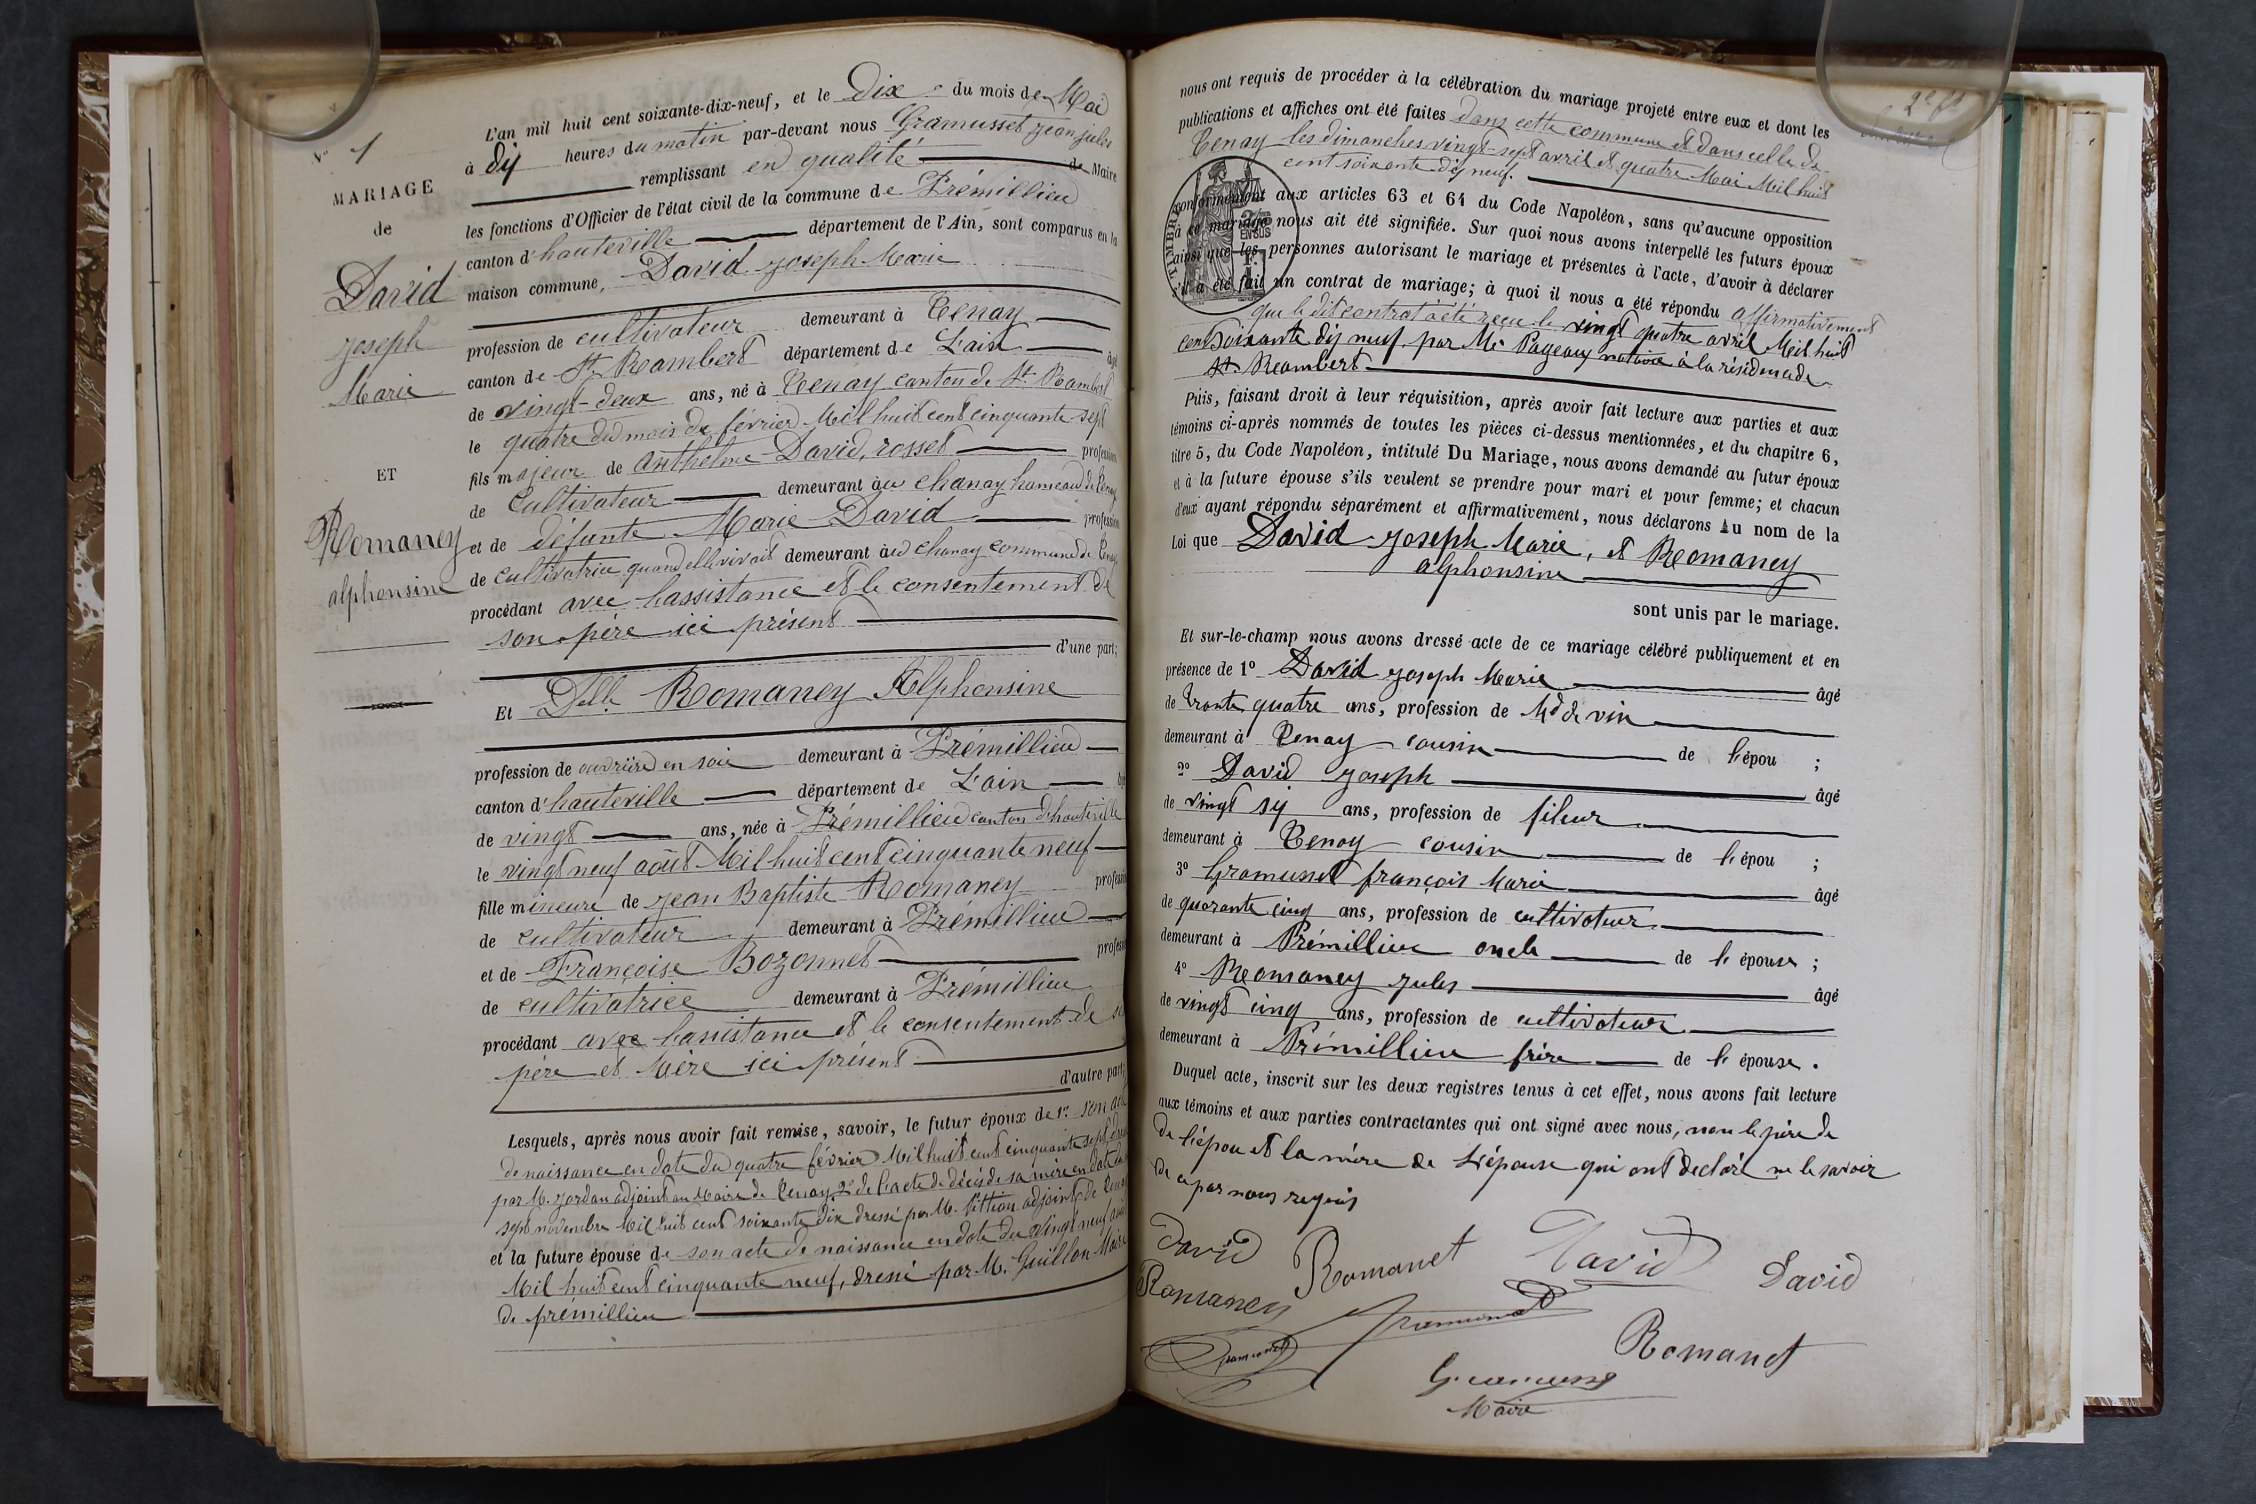 N° 1
MARIAGE
de
David
joseph
Marie
ET
Romaney
alphonsine
L'an mil huit cent soixante-dix-neuf, et le Dix du mois de Mai
à dix heures du matin par-devant nous Gramusset jean jules
remplissant en qualité de Maire
les fonctions d'Officier de l'état civil de la commune de Prémillieu
canton d'hauteville département de l'Ain, sont comparus en la
maison commune, David joseph Marie
profession de cultivateur demeurant à Tenay
canton de St Rambert département de L'ain âgé
de vingt-deux ans, né à Tenay canton de St Rambert
le quatre du mois de février Mil huit cent cinquante sept
fils majeur de anthelme David, rosset profession
de Cultivateur demeurant au chanay hameau de Tenay
et de défunte Marie David profession
de cultivatrice quand elle vivait demeurant au chanay commune de Tenay
procédant avec l'assistance et le consentement de
son père ici présent
d'une part;
Et Delle Romaney Alphonsine
profession de ouvrière en soie demeurant à Prémillieu
canton d'hauteville département de L'ain
de vingt ans, née à Prémillieu canton d'hauteville
le vingt neuf août Mil huit cent cinquante neuf
fille mineure de jean Baptiste Romaney profession
de cultivateur demeurant à Prémillieu
et de Françoise Bozonnet profession
de cultivatrice demeurant à Prémillieu
procédant avec l'assistance et le consentement de
père et Mère ici présent
d'autre part;
Lesquels, après nous avoir fait remise, savoir, le futur époux de 1° son acte
de naissance en date du quatre février Mil huit cent cinquante sept
par M. jordan adjoint au Maire de Tenay 2° de l'acte de décès de sa mère en date du
sept novembre Mil huit cent soixante dix dressé par M. Pittion adjoint de Tenay
et la future épouse de son acte de naissance en date du vingt neuf août
Mil huit cent cinquante neuf, dressé par M. Guillon Maire
de prémillieu
nous ont requis de procéder à la célébration du mariage projeté entre eux et dont les
publications et affiches ont été faites dans cette commune et dans celle de
Tenay les dimanches vingt-sept avril et quatre Mai Mil huit
cent soixante dix neuf.
conformément aux articles 63 et 64 du Code Napoléon, sans qu'aucune opposition
à ce mariage nous ait été signifiée. Sur quoi nous avons interpellé les futurs époux
ainsi que les personnes autorisant le mariage et présentes à l'acte, d'avoir à déclarer
s'il a été fait un contrat de mariage; à quoi il nous a été répondu affirmativement
que le dit contrat à été reçu le vingt quatre avril Mil huit
cent soixante dix neuf par Me Pageaux notaire à la résidence de
St. Rambert
TIMBRE
2/10 EN SUS
Puis, faisant droit à leur réquisition, après avoir fait lecture aux parties et aux
témoins ci-après nommés de toutes les pièces ci-dessus mentionnées, et du chapitre 6,
titre 5, du Code Napoléon, intitulé Du Mariage, nous avons demandé au futur époux
et à la future épouse s'ils veulent se prendre pour mari et pour femme; et chacun
d'eux ayant répondu séparément et affirmativement, nous déclarons au nom de la
Loi que David joseph Marie, et Romaney
alphonsine
sont unis par le mariage.
Et sur-le-champ nous avons dressé acte de ce mariage célébré publiquement et en
présence de 1° David joseph Marie âgé
de trente quatre ans, profession de Md de vin
demeurant à Tenay cousin de l'épou ;
2° David joseph âgé
de vingt six ans, profession de fileur
demeurant à Tenay cousin de l'épou ;
3° Gramusset françois Marie âgé
de quarante cinq ans, profession de cultivateur
demeurant à Prémillieu oncle de l'épouse ;
4° Romaney jules âgé
de vingt cinq ans, profession de cultivateur
demeurant à Prémillieu frère de l'épouse.
Duquel acte, inscrit sur les deux registres tenus à cet effet, nous avons fait lecture
aux témoins et aux parties contractantes qui ont signé avec nous, non le père de
de l'épou et la mère de l'épouse qui ont declaré ne le savoir
de ce par nous requis
David Romanet David David
Romaney
Gramusset
Gramusset
Romanet
Gramusset
Maire